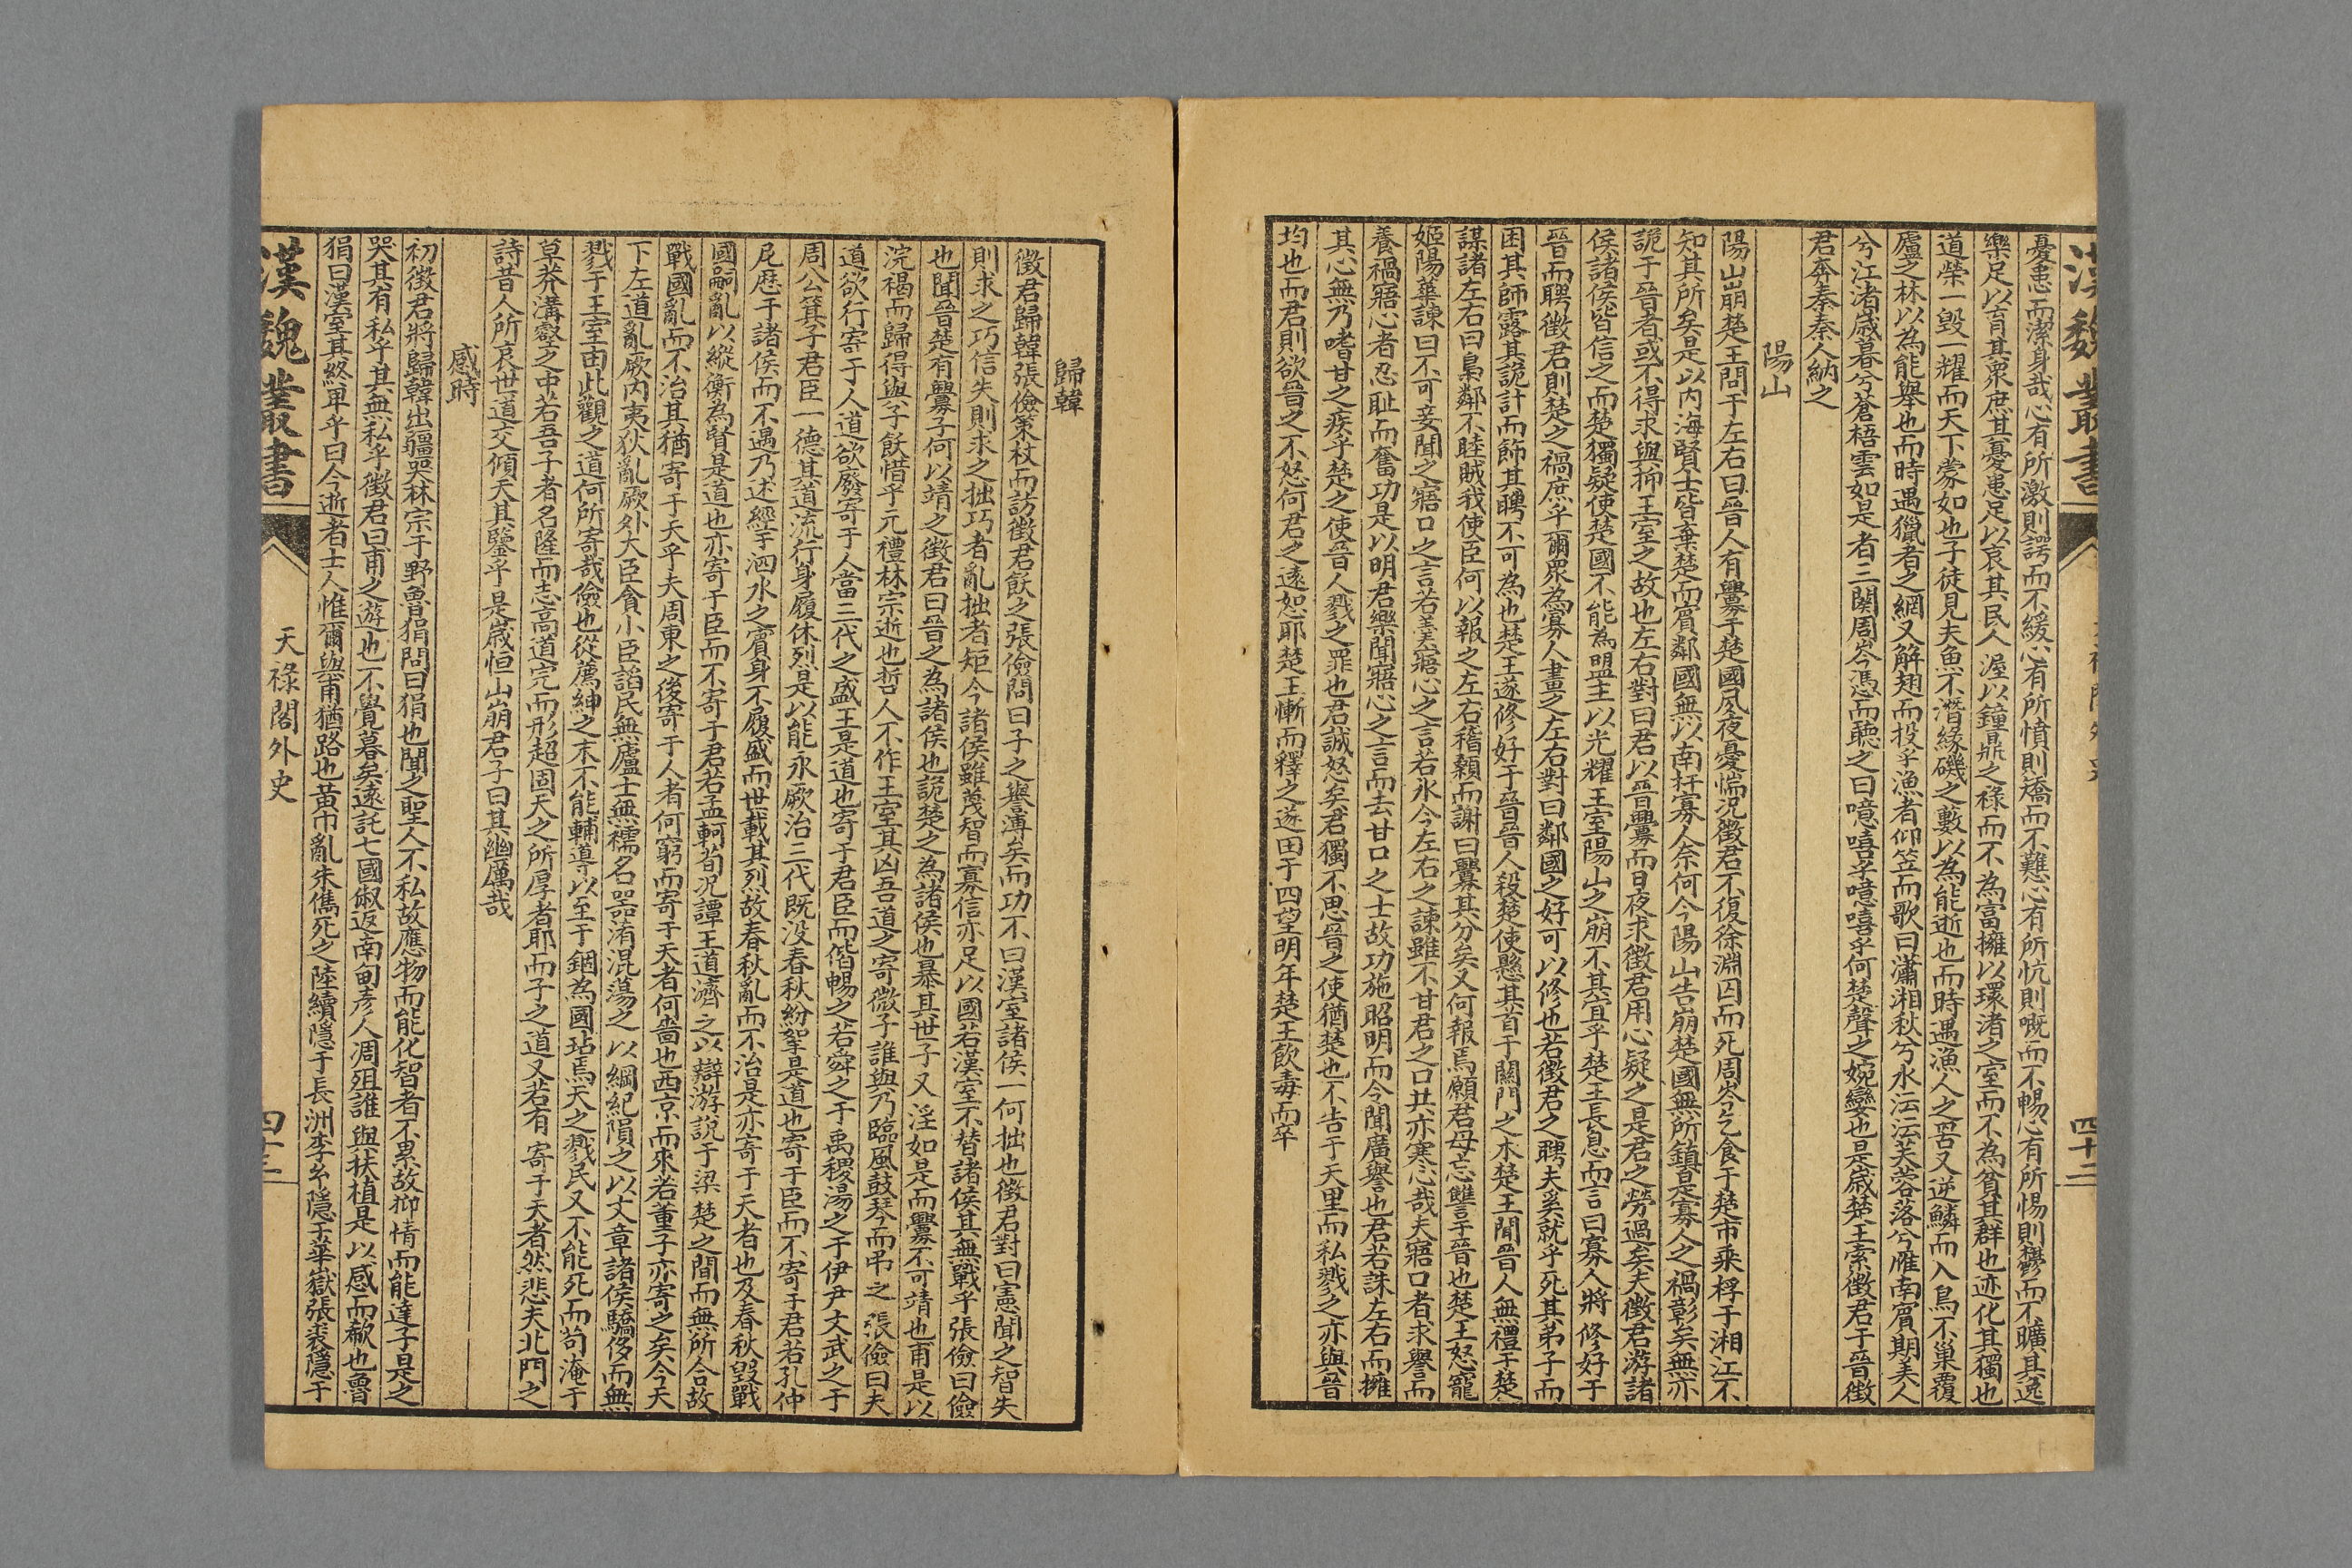 漢魏叢書
四十二
憂患而潔身哉心有所激則諤而不緩心有所憤則矯而不難心有所忼則嘅而不暢心有所惕則鬱而不曠其逸
樂足以育其眾庶其憂患足以哀其民人渥以鐘鼎之祿而不為富擁以環渚之室而不為貧其群也迹化其獨也
道榮一毀一耀而天下蒙如也子徒見夫魚不潛緣磯之藪以為能逝也而時遇漁人之罟又逆鱗而入鳥不巢覆
廬之林以為能舉也而時遇獵者之網又解翅而投乎漁者仰笠而歌曰瀟湘秋兮水沄沄芙蓉落兮雁南賓期美人
兮江渚歲暮兮蒼梧雲如是者三闋周岑憑而聽之曰噫嘻乎噫嘻乎何楚聲之婉孌也是歲楚王索徵君于晉徵
君奔秦秦人納之
陽山
陽山崩楚王問于左右曰晉人有釁于楚國夙夜憂惴況徵君不復徐淵囚而死周岑乞食于楚市乘桴于湘江不
知其所矣是以內海賢士皆棄楚而賓鄰國無以南扞寡人奈何今陽山告崩楚國無所鎮是寡人之禍彰矣無亦
詭于晉者或不得求與抑王室之故也左右對曰君以晉釁而日夜求徵君用心疑之是君之勞過矣夫徵君游諸
侯諸侯皆信之而楚獨疑使楚國不能為盟主以光耀王室陽山之崩不其宜乎楚王長息而言曰寡人將修好于
晉而聘徵君則楚之禍庶乎爾眾為寡人畫之左右對曰鄰國之好可以修也若徵君之聘夫奚就乎死其弟子而
困其師露其詭計而飾其聘不可為也楚王遂修好于晉晉人殺楚使懸其首于關門之木楚王聞晉人無禮于楚
謀諸左右曰梟鄰不睦賊我使臣何以報之左右稽顙而謝曰釁其分矣又何報焉願君母忘讐于晉也楚王怒寵
姬陽蕖諫曰不可妾聞之寤口之言若羹寤心之言若氷今左右之諫雖不甘君之口其亦寒心哉夫寤口者求譽而
養禍寤心者忍耻而奮功是以明君樂聞寤心之言而去甘口之士故功施昭明而令聞廣譽也君若誅左右而擁
其心無乃嗜甘之疾乎楚之使晉人戮之罪也君誠怒矣君獨不思晉之使猶楚也不告于天里而私戮之亦與晉
均也而君則欲晉之不怒何君之遠恕耶楚王慚而釋之遂田于四望明年楚王飲毒而卒
歸韓
徵君歸韓張儉策杖而訪徵君飲之張儉問曰子之譽溥矣而功不曰漢室諸侯一何拙也徵君對曰憲聞之智失
則求之巧信失則求之拙巧者亂拙者矩今諸侯雖蔑智而寡信亦足以國若漢室不替諸侯其無戰乎張儉曰儉
也聞晉楚有釁子何以靖之徵君曰晉之為諸侯也詭楚之為諸侯也暴其世子又淫如是而釁不可靖也甫是以
浣褐而歸得與子飲惜乎元禮林宗逝也哲人不作王室其凶吾道之寄微子誰與乃臨風鼓琴而弔之張儉曰夫
道欲行寄于人道欲廢寄于人當三代之盛王是道也寄于君臣而偕暢之若舜之于禹稷湯之于伊尹文武之于
周公箕子君臣一德其道流行身履休烈是以能永厥治三代既沒春秋紛挐是道也寄于臣而不寄于君若孔仲
尼歷于諸侯而不遇乃述經于泗水之賓身不履盛而世載其烈故春秋亂而不治是亦寄于天者也及春秋毀戰
國嗣亂以縱衡為賢是道也亦寄于臣而不寄于君若孟軻荀況譚王道濟之以辯游說于梁楚之間而無所合故
戰國亂而不治其猶寄于天乎夫周東之後寄于人者何窮而寄于天者何嗇也西京而來若董子亦寄之矣今天
下左道亂厥內夷狄亂厥外大臣貪小臣諂民無廬士無襦名器洧混蕩之以綱紀隕之以文章諸侯驕侈而無
戮于王室由此觀之道何所寄哉儉也從薦紳之末不能輔導以至于錮為國玷焉天之戮民又不能死而苟淹于
草莽溝壑之中若吾子者名隆而志高道完而形超固天之所厚者耶而子之道又若有寄于天者然悲夫北門之
詩昔人所哀世道交傾天其鑒乎是歲恒山崩君子曰其幽厲哉
感時
初徵君將歸韓出疆哭林宗于野魯狷問曰狷也聞之聖人不私故應物而能化智者不累故抑情而能達子是之
哭其有私乎其無私乎徵君曰甫之游也不覺暮矣遠託七國俶返南甸彥人凋殂誰與扶植是以感而欷也魯
狷曰漢室其終卑乎曰今逝者士人惟爾與甫猶路也黃巾亂朱儁死之陸續隱于長洲李糸隱于華嶽張裘隱于
漢魏叢書
天祿閣外史
四十三